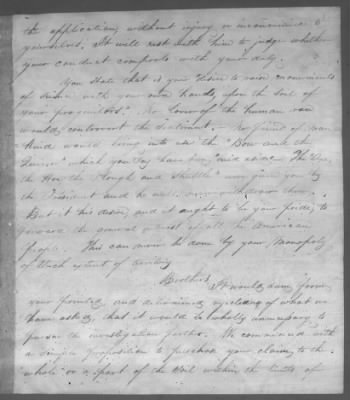 the application, without injury or inconvenience to
yourselves. It will rest with him to judge whether
your conduct comports with your duty.
You state that it is your desire to raise monuments
of with your own hands, upon the soil of
your progenitors." No lover of the human race
would controvert the sentiment. No friend of man
kind would bring into use the "Bow and the
" which you say have been "laid aside. The Axe,
the Hoe the Plough and Shuttle" were given you by
the President and he will
But it his desire, and it ought to be your pride, to
forward the general interest of all the American
people. This can never be done by your monopoly
of such extent of territory.
Brothers,
It would seem from
your pointed and determined rejecting of what we
have asked, that it would be wholly unnecessary to
pursue the investigation further. We commenced with
a simple proposition to purchase your claim, to the
whole or a part of the soil within the limits of